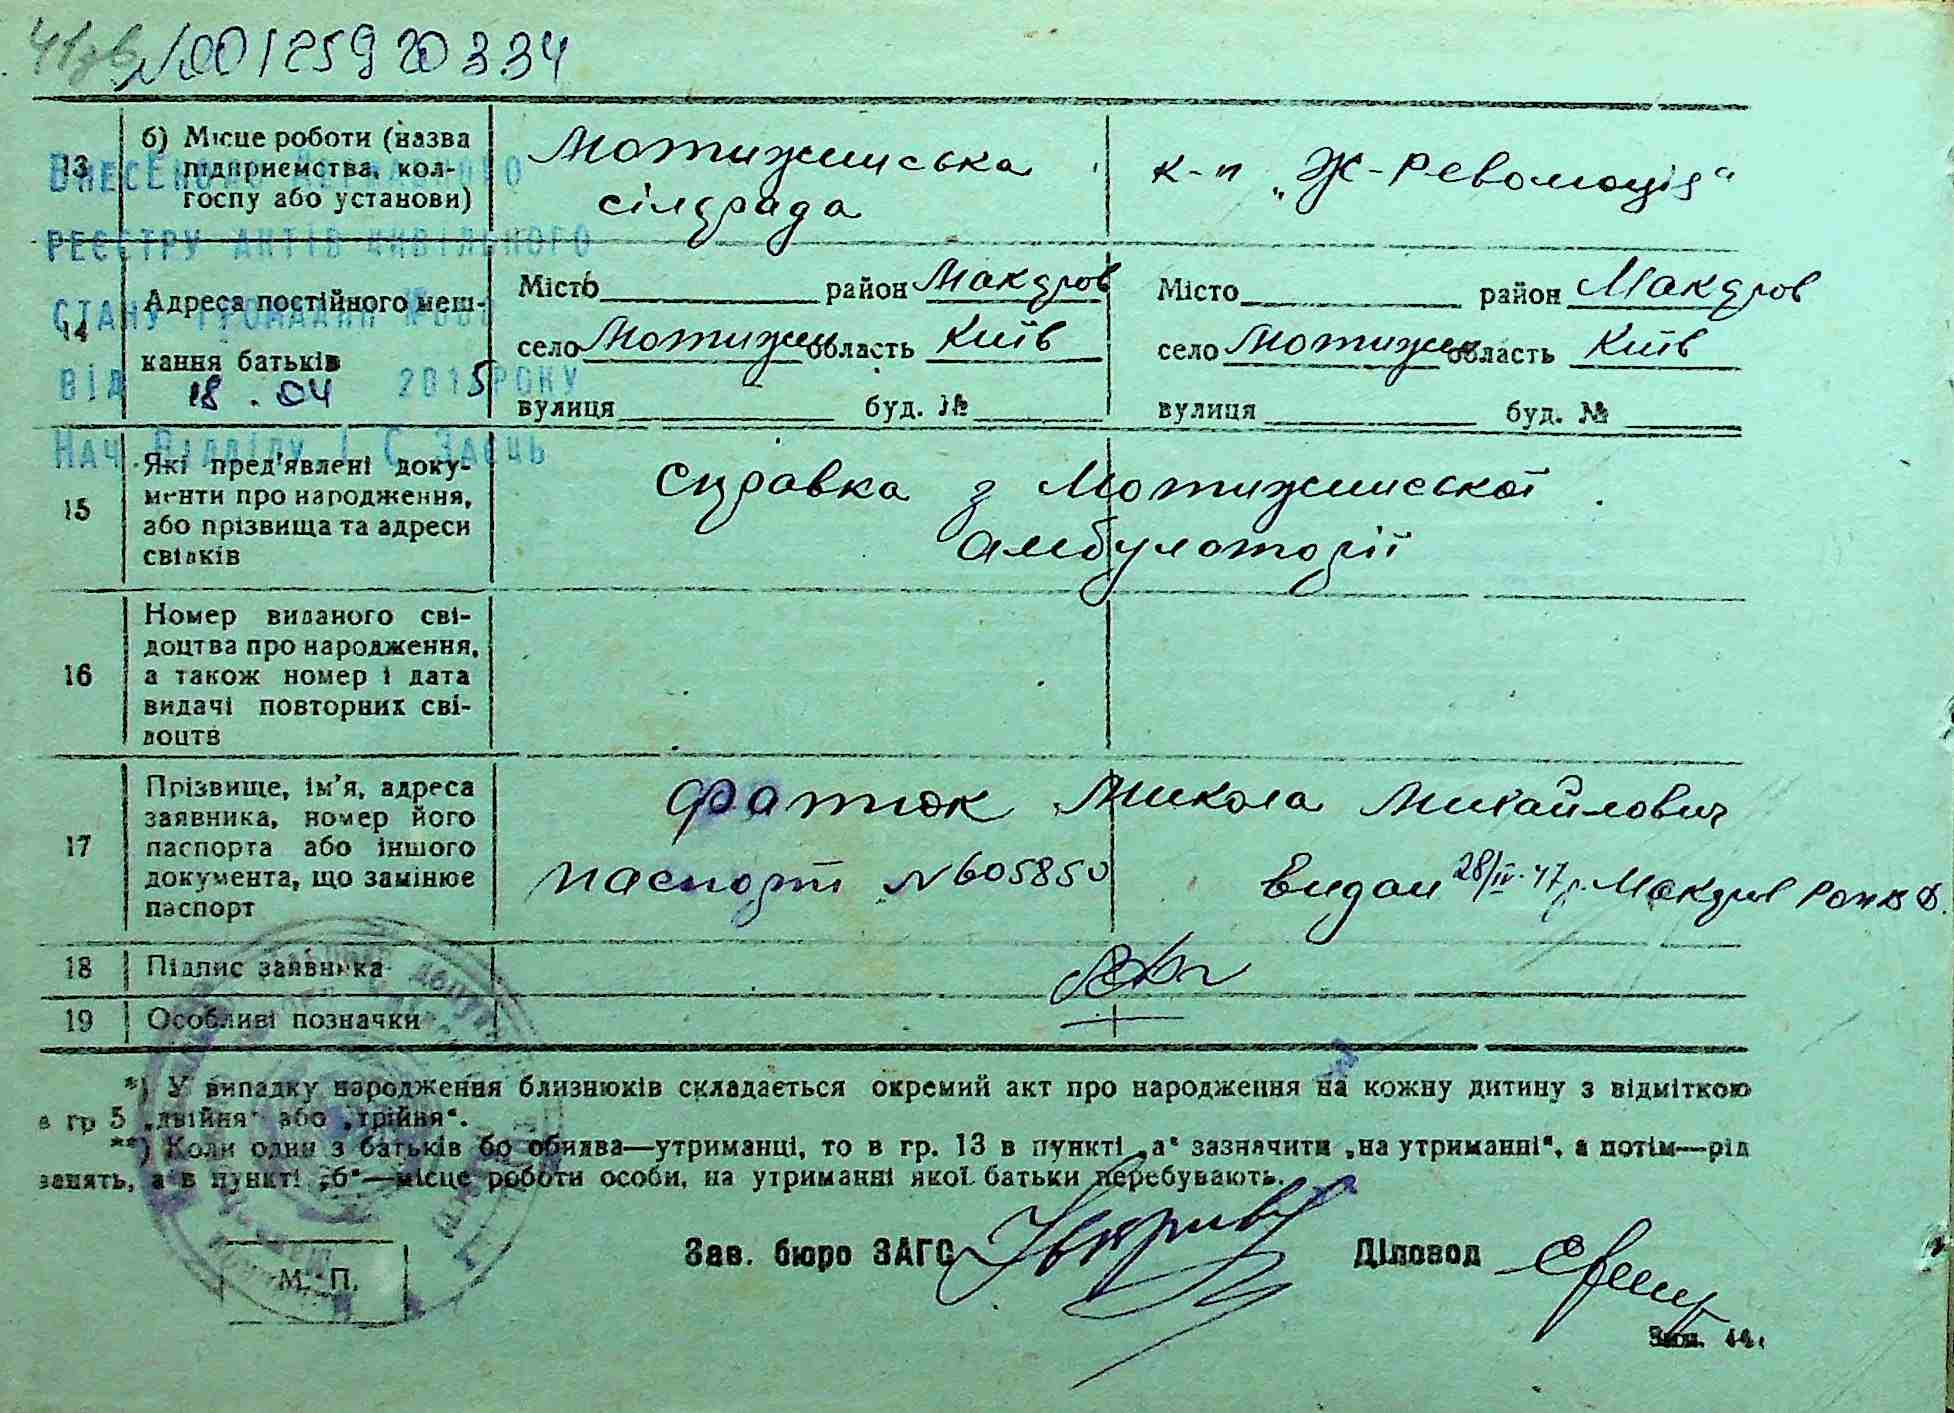 41зв №00125920334
13 б) Місце роботи (назва підприємства, колгоспу або установи)
Мотижинська сілрада
к-п „Ж-Революція“
ВНЕСЕНО ДО ДЕРЖАВНОГО
РЕЄСТРУ АКТІВ ЦИВІЛЬНОГО
СТАНУ ГРОМАДЯН
ВІД 18.04 2015 РОКУ
НАЧ. ВІДДІЛУ І С ЗАЄЦЬ
14 Адреса постійного мешкання батьків
Місто район Макаров
село Мотижин область Київ
вулиця буд. №
Місто район Макаров
село Мотижин область Київ
вулиця буд. №
15 Які пред'явлені документи про народження, або прізвища та адреси свідків
Справка з Мотижинської
амбулаторії
16 Номер виданого свідоцтва про народження, а також номер і дата видачі повторних свідоцтв
17 Прізвище, ім'я, адреса заявника, номер його паспорта або іншого документа, що замінює паспорт
Фатюк Микола Михайлович
паспорт №605850 видан 28/IV-47р. Макарів
18 Підпис заявника
19 Особливі позначки
*) У випадку народження близнюків складається окремий акт про народження на кожну дитину з відміткою
в гр 5 „двійня“ або „трійня“.
**) Коли один з батьків бо обидва—утриманці, то в гр. 13 в пункті „а“ зазначити „на утриманні“, а потім—рід
занять, а в пункті „б“—місце роботи особи, на утриманні якої батьки перебувають.
Зав. бюро ЗАГС
Діловод
М. П.
Зам. 44.